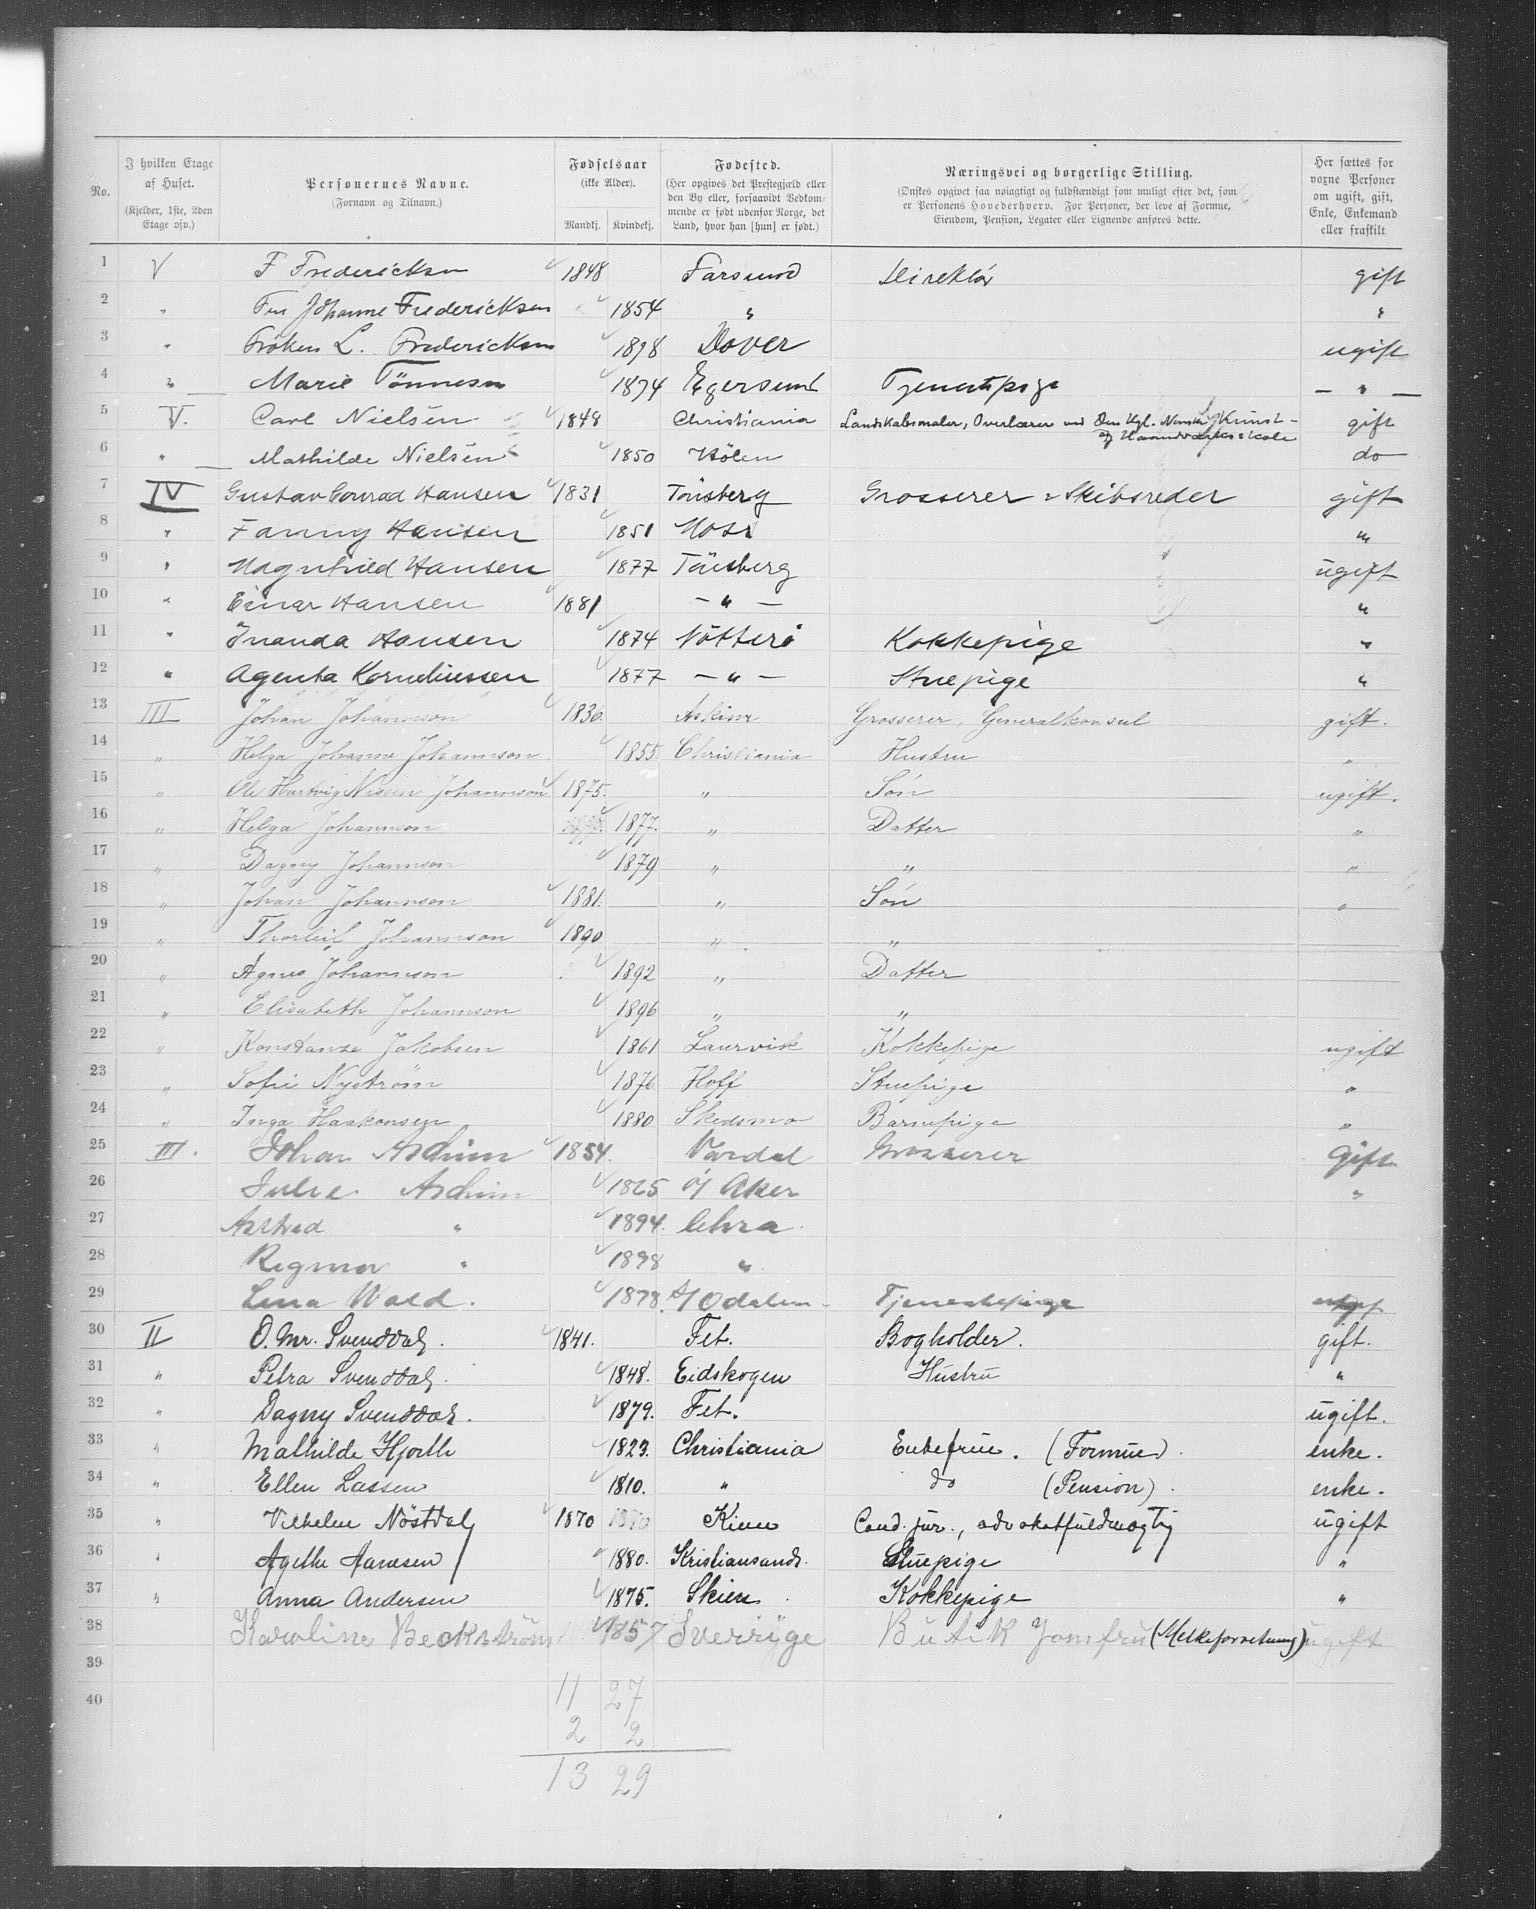 No. | I hvilken Etage af Huset. (Kjelder, 1ste, 2den Etage osv.) | Personernes Navne. (Fornavn og Tilnavn.) | Fødselsaar (ikke Alder). Mandkj. Kvindekj. | Fødested. (Her opgives det Prestegjæld eller den By eller, forsaavidt Vedkommende er født udenfor Norge, det Land, hvor han [hun] er født.) | Næringsvei og borgerlige Stilling. (Ønskes opgivet saa nøiagtigt og fuldstændigt som muligt efter det, som er Personens Hovederhverv. For Personer, der leve af Formue, Eiendom, Pension, Legater eller Lignende anføres dette.) | Her sættes for voxne Personer om ugift, gift, Enke, Enkemand eller fraskilt
1 V F Fredericksen 1848 Farsund Direktör gift
2 " Fru Johanne Fredericksen 1854 " "
3 " Fröken L. Fredericksen 1898 Dover ugift
4 " Marie Tönnesen 1874 Egersund Tjenestpige — " —
5 V. Carl Nielsen 1848 Christiania Landskabsmaler, Overlærer ved Den Kgl. Norske Kunst- og Haandværksskole gift
6 " Mathilde Nielsen 1850 Hölen do
7 IV Gustav Conrad Hansen 1831 Tönsberg Grosserer & Skibsreder gift
8 " Fanny Hansen 1851 Moss "
9 " Magnhild Hansen 1877 Tönsberg ugift
10 " Einar Hansen 1881 — " — "
11 " Inanda Hansen 1874 Nötterö Kokkepige "
12 " Agenta Korneliussen 1877 — " — Stuepige "
13 III Johan Johannson 1836. Askim Grosserer, Generalkonsul gift.
14 " Helga Johanne Johannson 1855. Christiania Hustru "
15 " Ole Hartvig Nissen Johannson 1875. " Søn ugift.
16 " Helga Johannson 1877. " Datter "
17 " Dagny Johannson 1879 " " "
18 " Johan Johannson 1881. " Søn "
19 " Thorleif Johannson 1890 " "
20 " Agnes Johannson 1892 " Datter
21 " Elisabeth Johannson 1896 " "
22 " Konstanse Jakobsen 1861 Laurvik Kokkepige ugift
23 " Sofie Nyström 1876 Hoff Stuepige "
24 " Inga Haakonsen 1880 Skedsmo Barnepige "
25 III. Johan Aschim 1854. Vardal Grosserer Gift
26 Julie Aschim 1865 Ø/ Aker "
27 Astrid " 1894. Chra.
28 Ragmor " 1898 "
29 Lina Wold. 1878. S/Odalen. Tjenestepige
30 II O. Mr. Svenddal. 1841. Fet. Bogholder. gift.
31 " Petra Svenddal. 1848. Eidskogen Hustru "
32 " Dagny Svenddal. 1879. Fet. ugift.
33 " Mathilde Hjorth 1823. Christiania Enkefrue. (Formue). enke.
34 " Ellen Lassen 1810. " do (Pension). enke.
35 " Vilhelm Nöstdal 1870 Cand. jur., advokatfuldmægtig ugift
36 " Agethe Hansen 1880. Kristiansand. Stuepige "
37 " Anna Andersen 1875. Skien. Kokkepige "
38 Karoline Beckström 1857 Sverrige Butik Jomfru (Melkeforretning) ugift
39
40
11 27
2 2
13 29